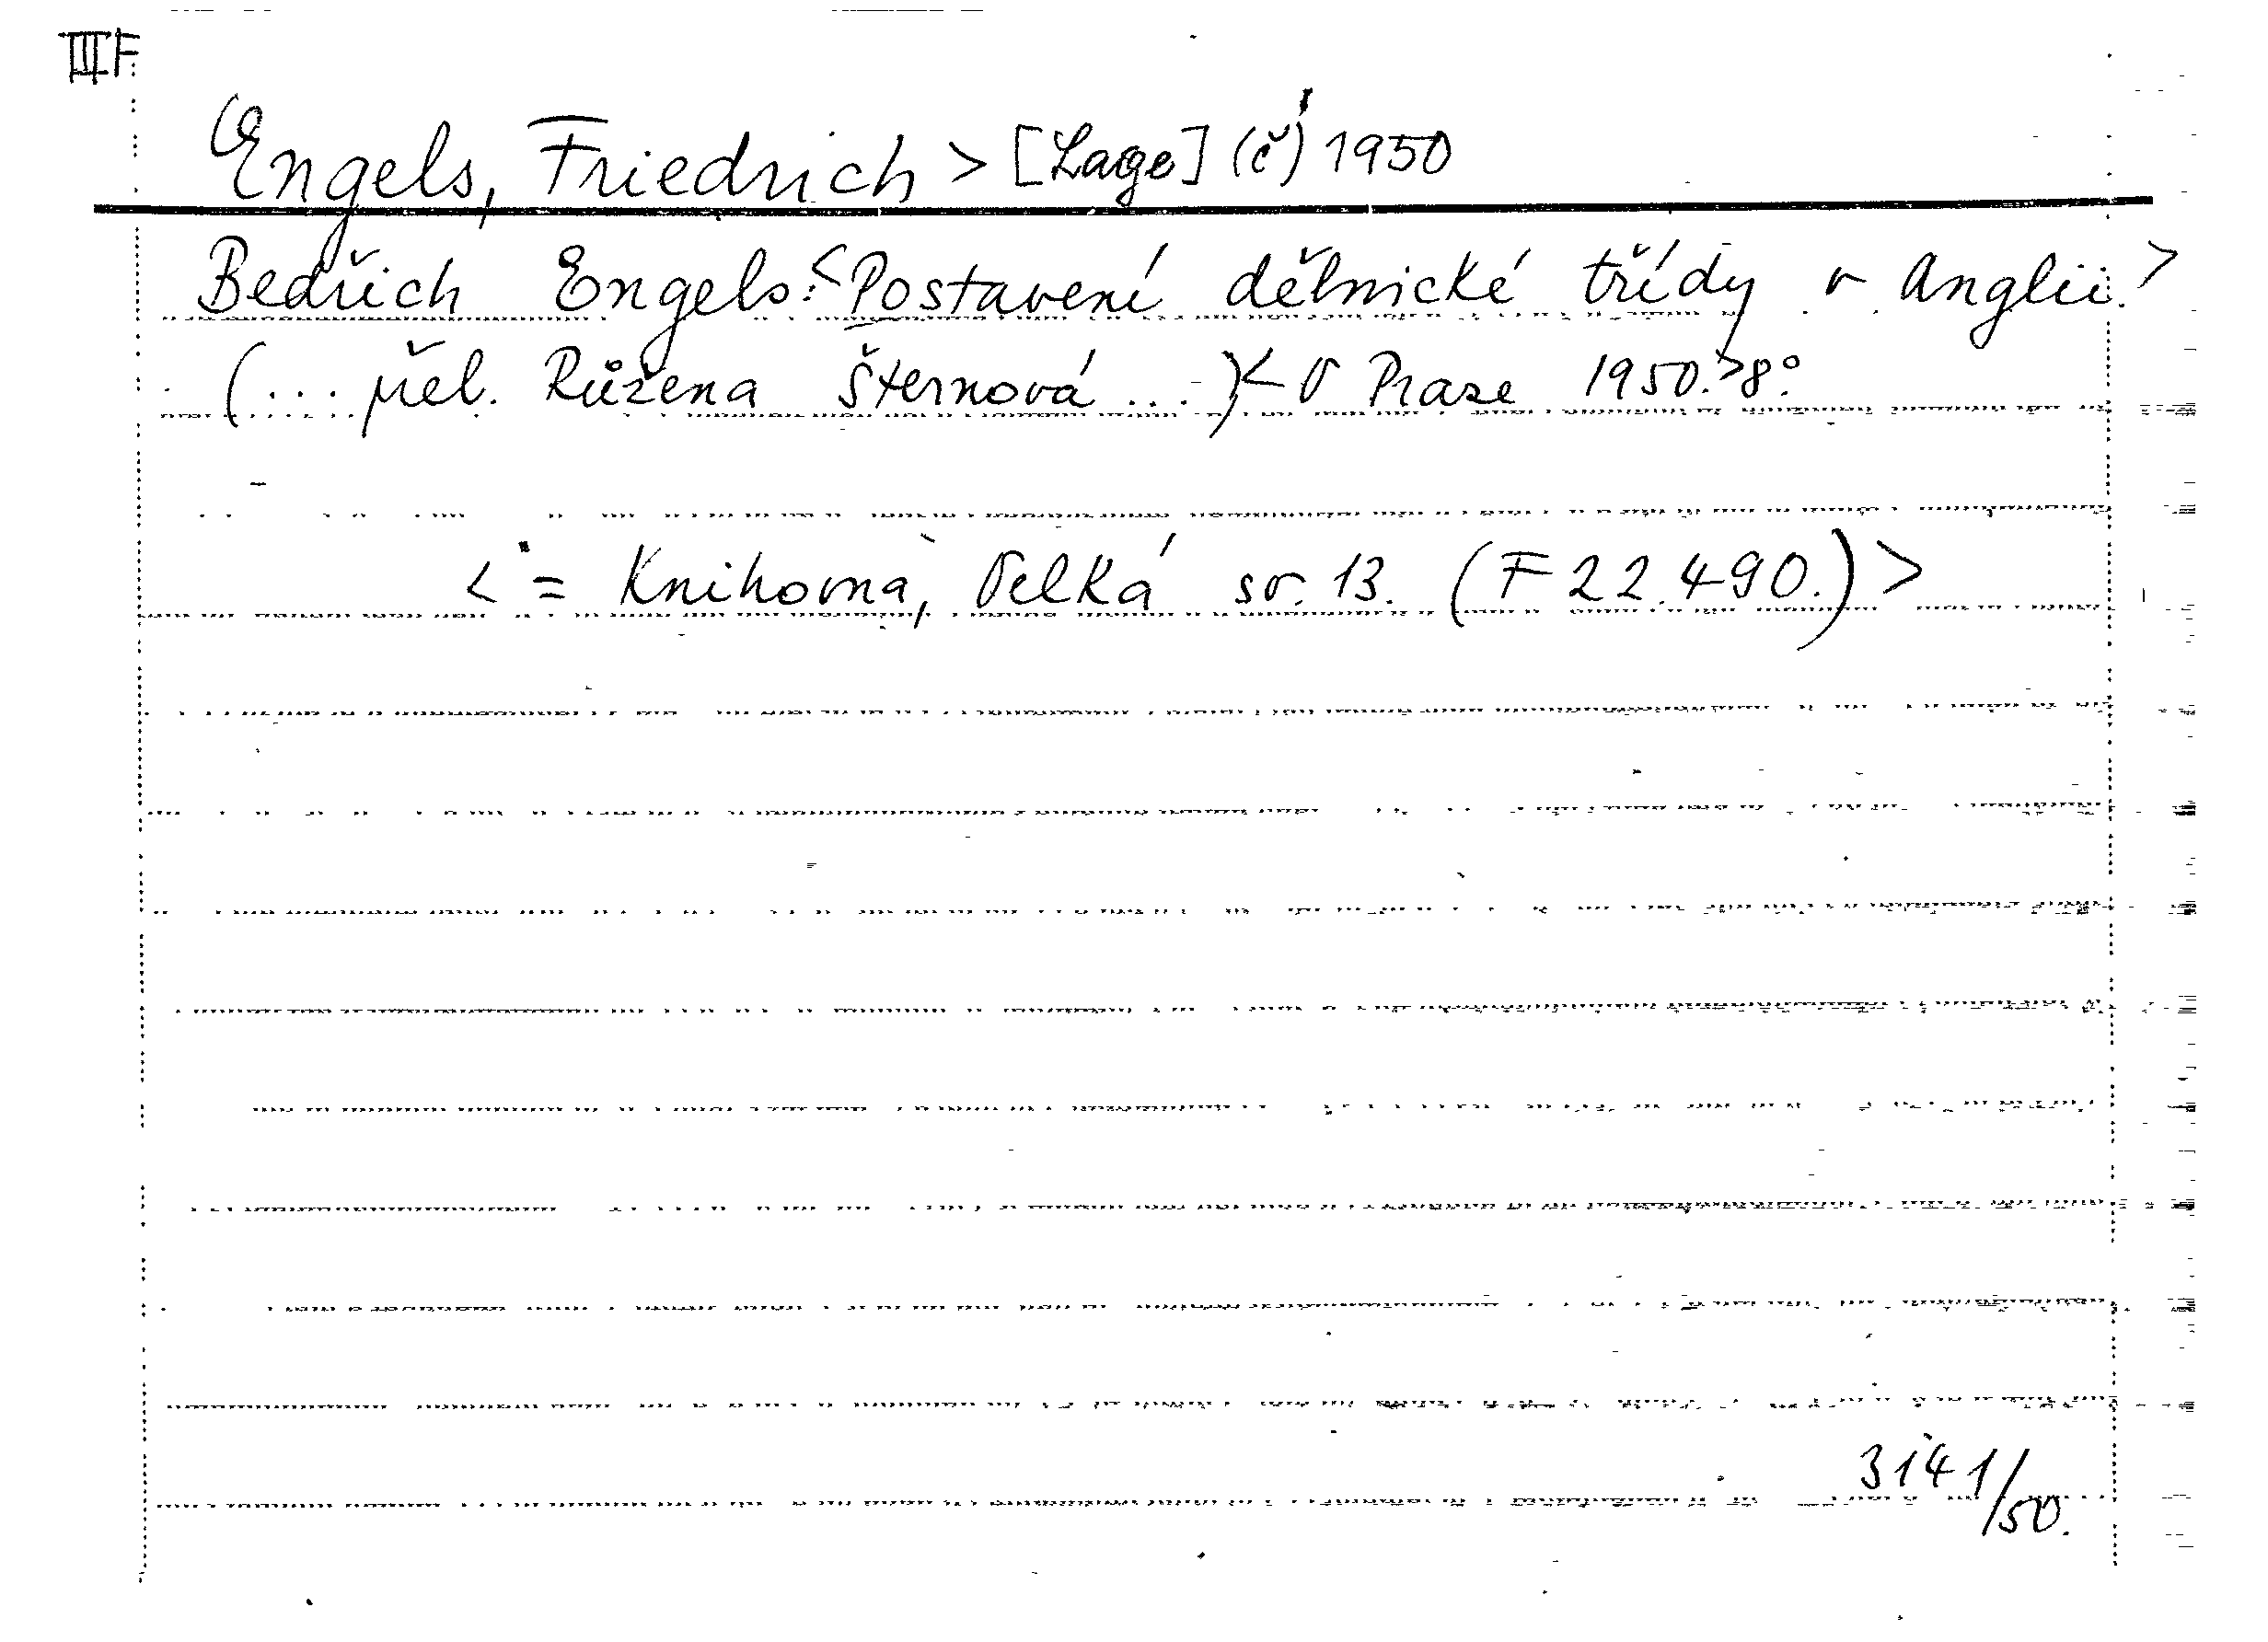 III F
<Engels, Friedrich> [Lage] (č) 1950
Bedřich Engels: <Postavení dělnické třídy v Anglii.>
(... přel. Růžena Šternová ...) <V Praze 1950.> 8°.
< = Knihovna, Velká sv. 13. (F 22.490.)>
3141/50.